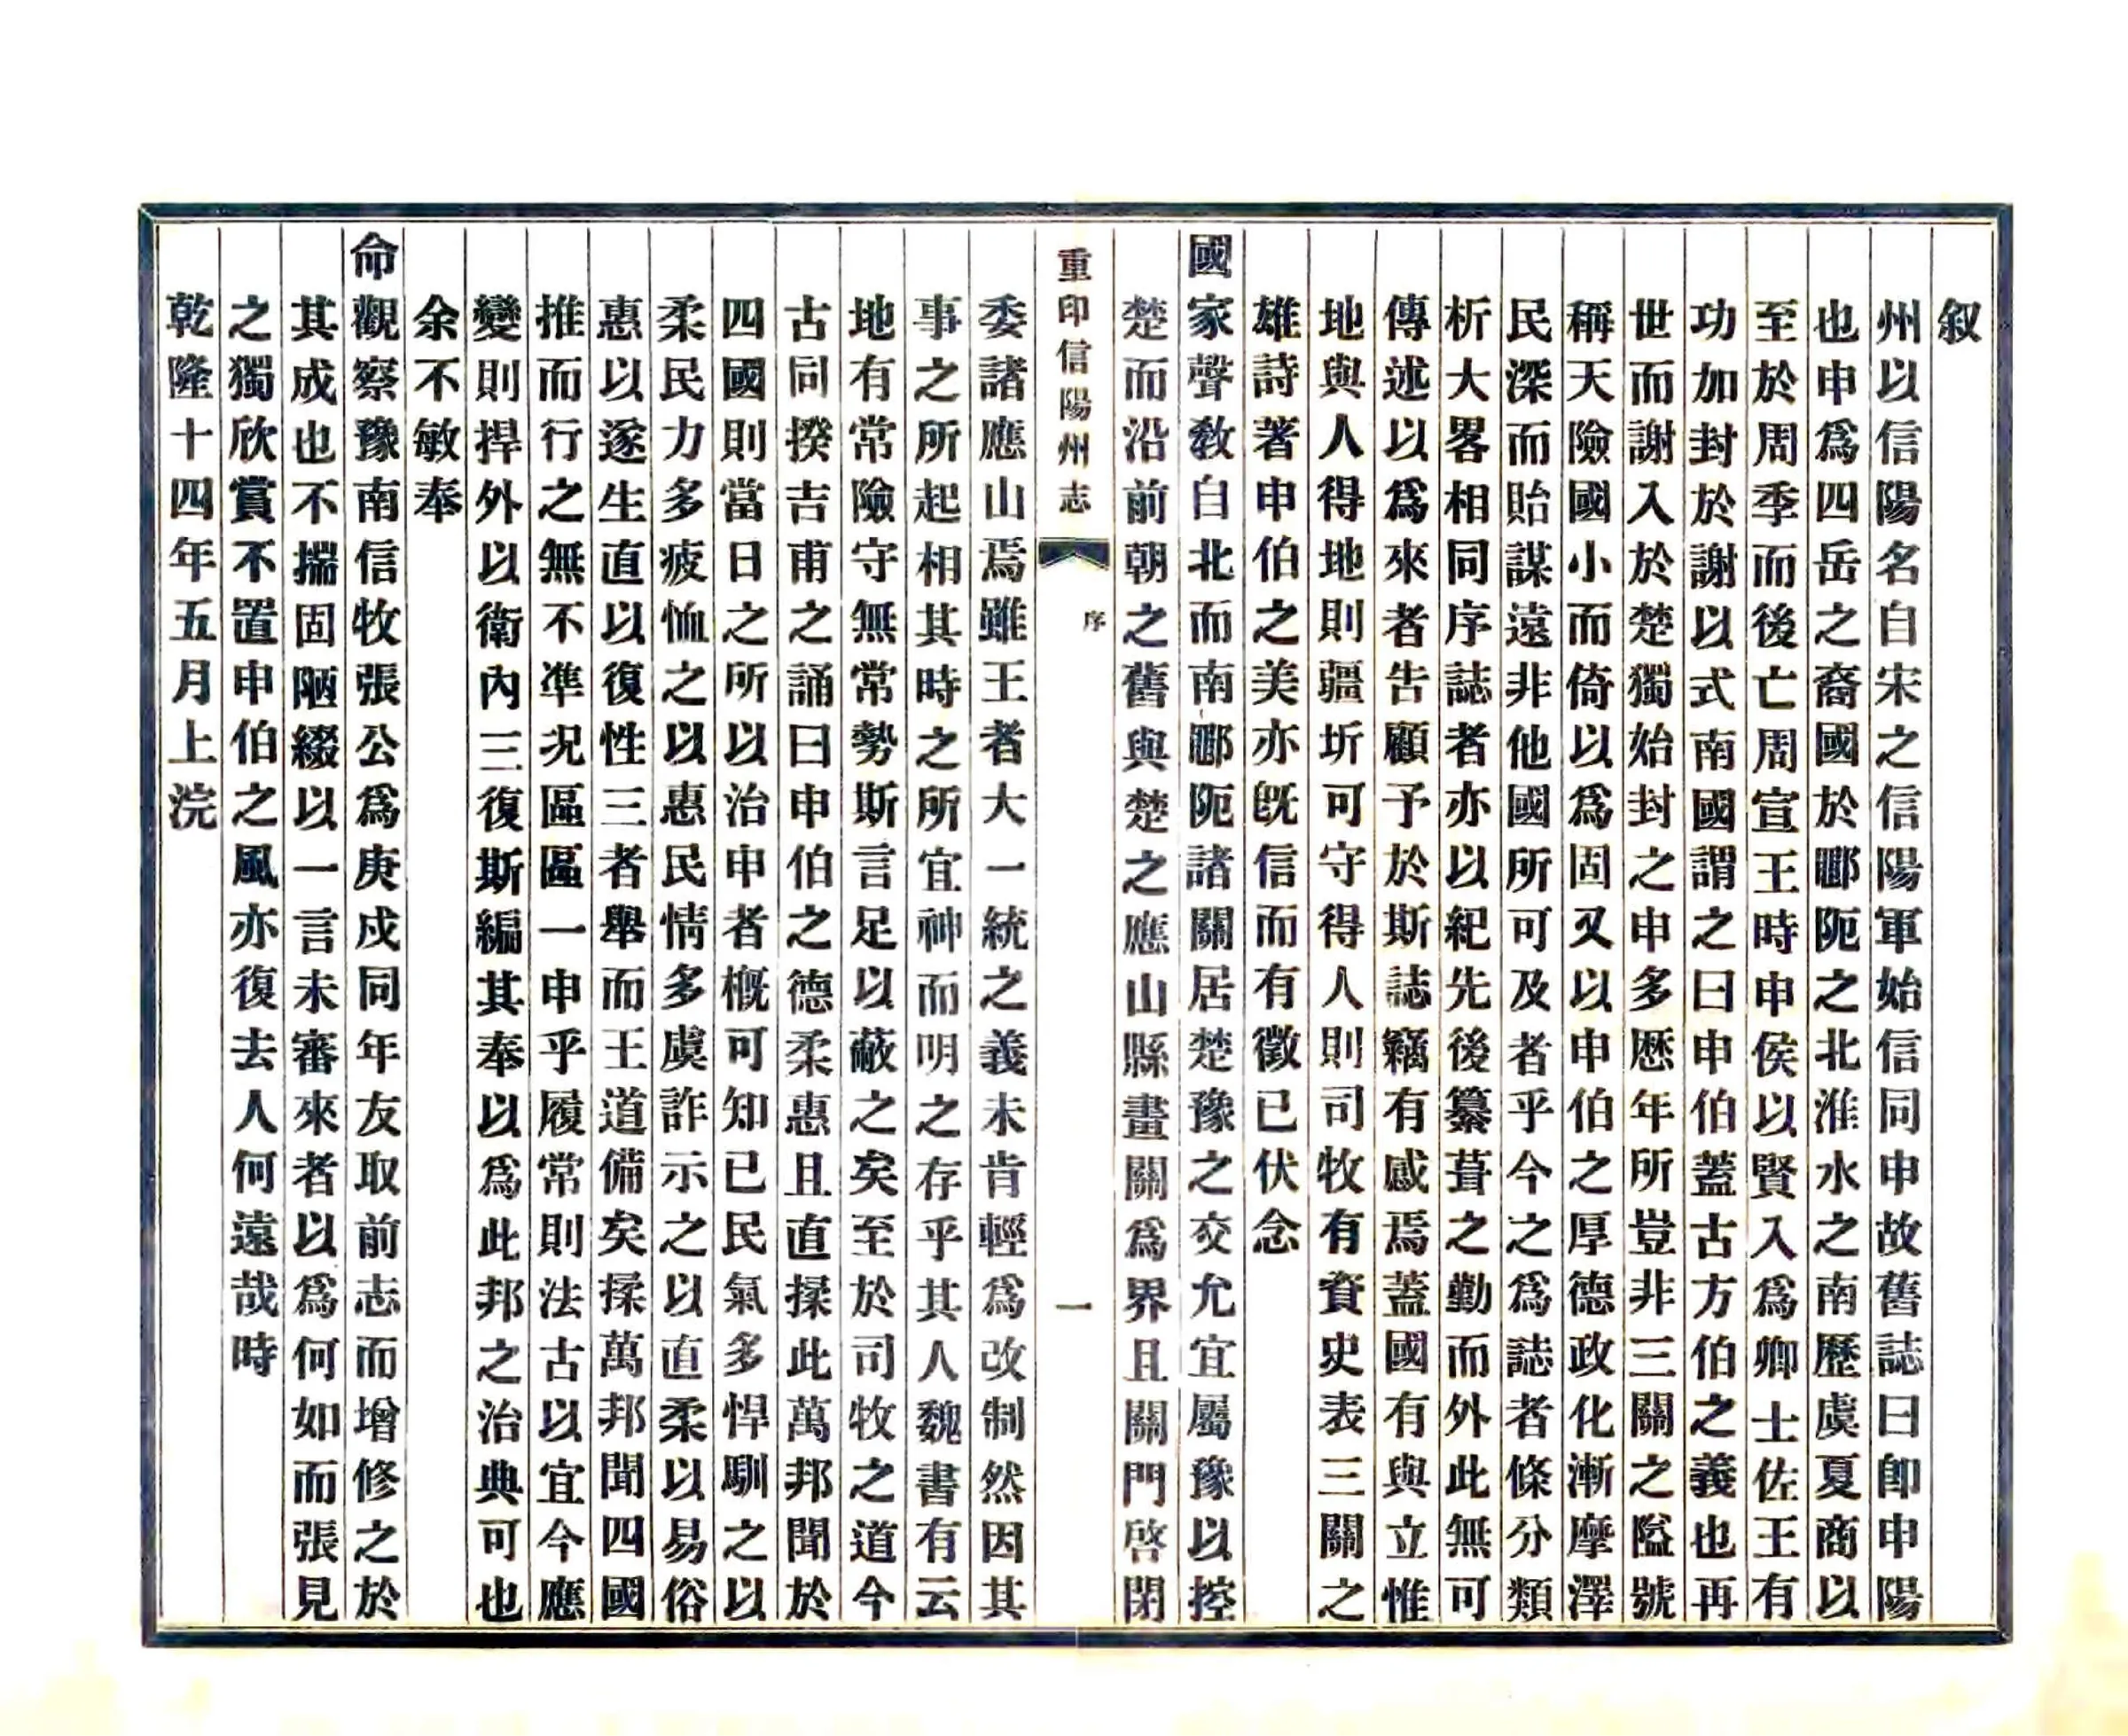 叙
州以信陽名自宋之信陽軍始信同申故舊誌曰卽申陽
也申爲四岳之裔國於郾阨之北淮水之南歷虞夏商以
至於周季而後亡周宣王時申侯以賢入爲卿士佐王有
功加封於謝以式南國謂之曰申伯蓋古方伯之義也再
世而謝入於楚獨始封之申多歷年所豈非三關之隘號
稱天險國小而倚以爲固又以申伯之厚德政化漸摩澤
民深而貽謀遠非他國所可及者乎今之爲誌者條分類
析大畧相同序誌者亦以紀先後纂葺之勤而外此無可
傳述以爲來者告顧予於斯誌竊有感焉蓋國有與立惟
地與人得地則疆圻可守得人則司牧有資史表三關之
雄詩著申伯之美亦旣信而有徵已伏念
國家聲敎自北而南郾阨諸關居楚豫之交允宜屬豫以控
楚而沿前朝之舊與楚之應山縣畫關爲界且關門啓閉
重印信陽州志
序
一
委諸應山焉雖王者大一統之義未肯輕爲改制然因其
事之所起相其時之所宜神而明之存乎其人魏書有云
地有常險守無常勢斯言足以蔽之矣至於司牧之道今
古同揆吉甫之誦曰申伯之德柔惠且直揉此萬邦聞於
四國則當日之所以治申者槪可知已民氣多悍馴之以
柔民力多疲恤之以惠民情多虞詐示之以直柔以易俗
惠以遂生直以復性三者舉而王道備矣揉萬邦聞四國
推而行之無不準況區區一申乎履常則法古以宜今應
變則捍外以衛內三復斯編其奉以爲此邦之治典可也
余不敏奉
命觀察豫南信牧張公爲庚戍同年友取前志而增修之於
其成也不揣固陋綴以一言未審來者以爲何如而張見
之獨欣賞不置申伯之風亦復去人何遠哉時
乾隆十四年五月上浣